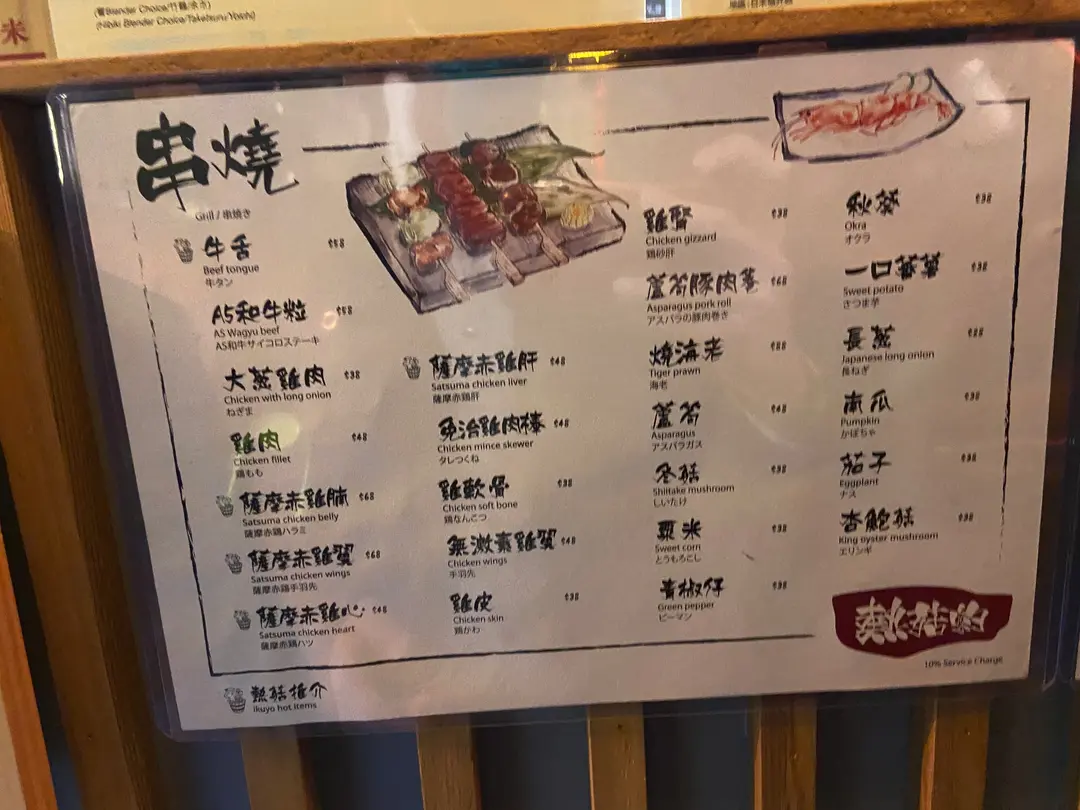 米
(響Blender Choice/竹鶴/余市)
(Hibiki Blender Choice/Taketsuru/Yoichi)
串燒
Grill / 串焼き
牛舌 $58
Beef tongue
牛タン
A5和牛粒 $58
A5 Wagyu beef
A5和牛サイコロステーキ
大蔥雞肉 $38
Chicken with long onion
ねぎま
雞肉 $48
Chicken fillet
鶏もも
薩摩赤雞腩 $68
Satsuma chicken belly
薩摩赤鶏ハラミ
薩摩赤雞翼 $68
Satsuma chicken wings
薩摩赤鶏手羽先
薩摩赤雞心 $48
Satsuma chicken heart
薩摩赤鶏ハツ
薩摩赤雞肝 $48
Satsuma chicken liver
薩摩赤鶏肝
免治雞肉棒 $48
Chicken mince skewer
タレつくね
雞軟骨 $38
Chicken soft bone
鶏なんこつ
無激素雞翼 $48
Chicken wings
手羽先
雞皮 $38
Chicken skin
鶏かわ
雞腎 $38
Chicken gizzard
鶏砂肝
蘆筍豚肉卷 $68
Asparagus pork roll
アスパラの豚肉巻き
燒海老
Tiger prawn
海老
蘆筍 $48
Asparagus
アスパラガス
冬菇 $38
Shiitake mushroom
しいたけ
粟米 $38
Sweet corn
とうもろこし
青椒仔 $38
Green pepper
ピーマン
秋葵 $38
Okra
オクラ
一口蕃薯 $38
Sweet potato
さつま芋
長蔥
Japanese long onion
長ねぎ
南瓜 $38
Pumpkin
かぼちゃ
茄子 $38
Eggplant
ナス
杏鮑菇 $38
King oyster mushroom
エリンギ
10% Service Charge
熱菇推介
Ikuyo hot items